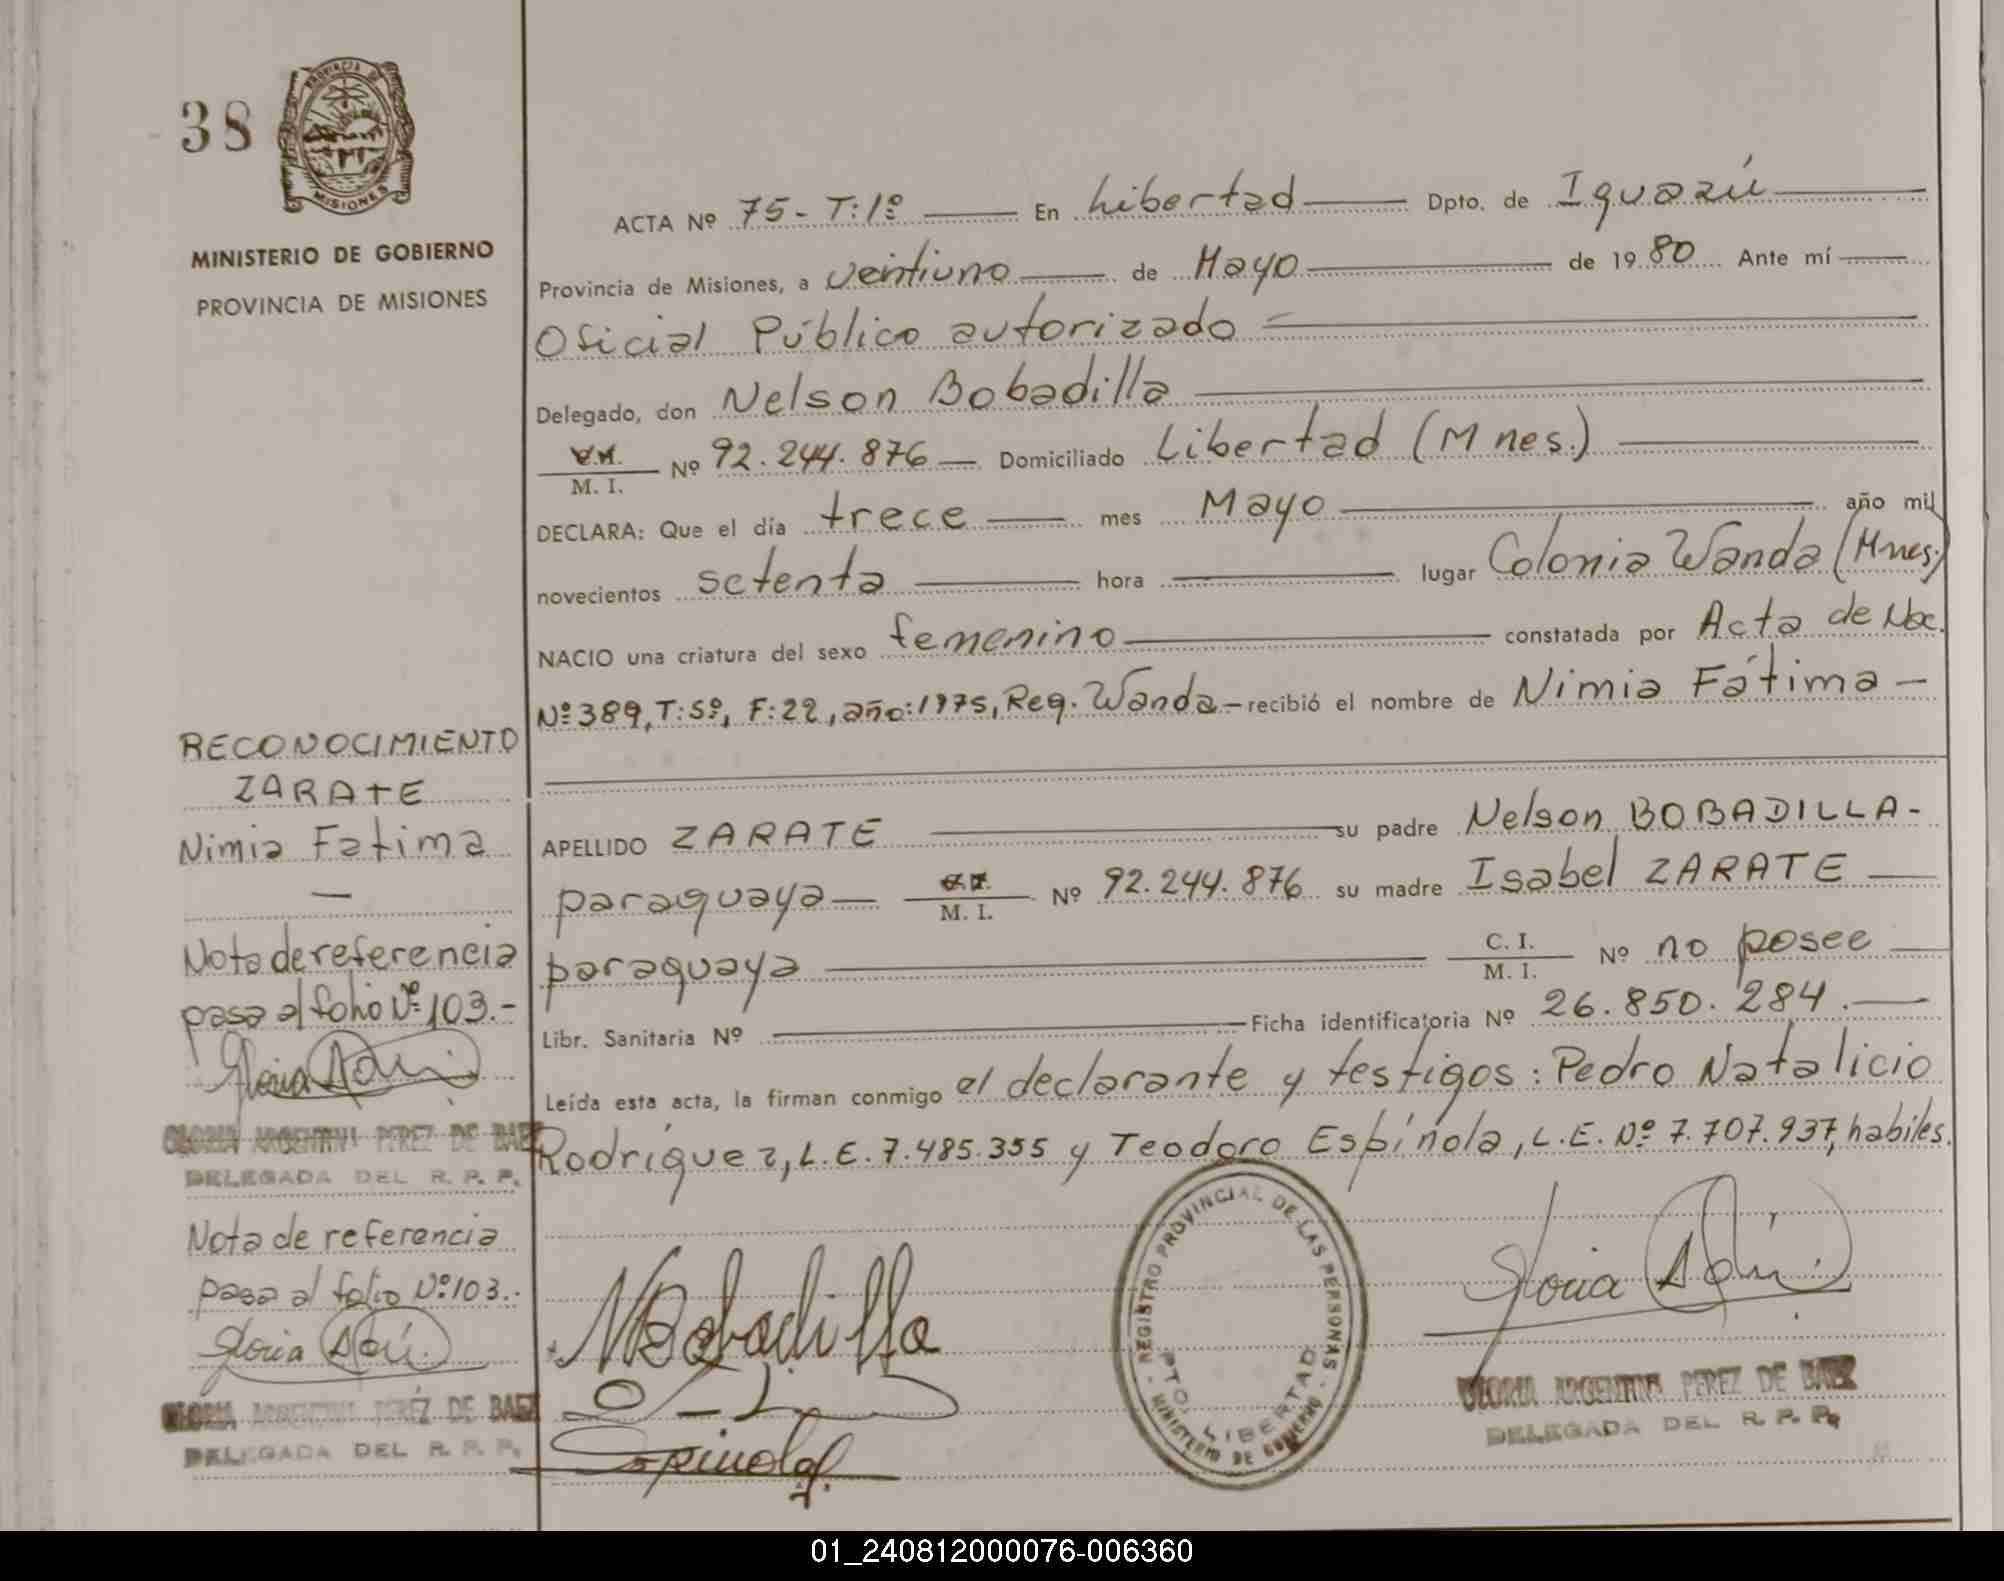 38
PROVINCIA DE
MISIONES
MINISTERIO DE GOBIERNO
PROVINCIA DE MISIONES
ACTA Nº 75- T:1º En Libertad Dpto. de Iguazú
Provincia de Misiones, a veintiuno de Mayo de 1980 Ante mí
Oficial Público autorizado
Delegado, don Nelson Bobadilla
M. I. Nº 92.244.876 Domiciliado Libertad (Mnes.)
DECLARA: Que el día trece mes Mayo año mil
novecientos setenta hora lugar Colonia Wanda (Mnes.)
NACIO una criatura del sexo femenino constatada por Acta de Nac.
Nº 389, T:5º, F:22, año:1975, Reg. Wanda - recibió el nombre de Nimia Fátima -
RECONOCIMIENTO
ZARATE
Nimia Fatima
—
Nota de referencia
pasa al folio Nº 103.-
Gloria
GLORIA ARGENTINA PEREZ DE BAEZ
DELEGADA DEL R. P. P.
Nota de referencia
pasa al folio Nº 103.-
Gloria
GLORIA ARGENTINA PEREZ DE BAEZ
DELEGADA DEL R. P. P.
APELLIDO ZARATE su padre Nelson BOBADILLA-
paraguaya M. I. Nº 92.244.876 su madre Isabel ZARATE
paraguaya C. I. M. I. Nº no posee
Libr. Sanitaria Nº Ficha identificatoria Nº 26.850.284.
Leída esta acta, la firman conmigo el declarante y testigos: Pedro Natalicio
Rodríguez, L.E. 7.485.355 y Teodoro Espínola, L.E. Nº 7.707.937, habiles.
NBobadilla
Espinola
REGISTRO PROVINCIAL DE LAS PERSONAS
PTO. LIBERTAD
- MINISTERIO DE GOBIERNO -
Gloria
GLORIA ARGENTINA PEREZ DE BAEZ
DELEGADA DEL R. P. P.
01_240812000076-006360